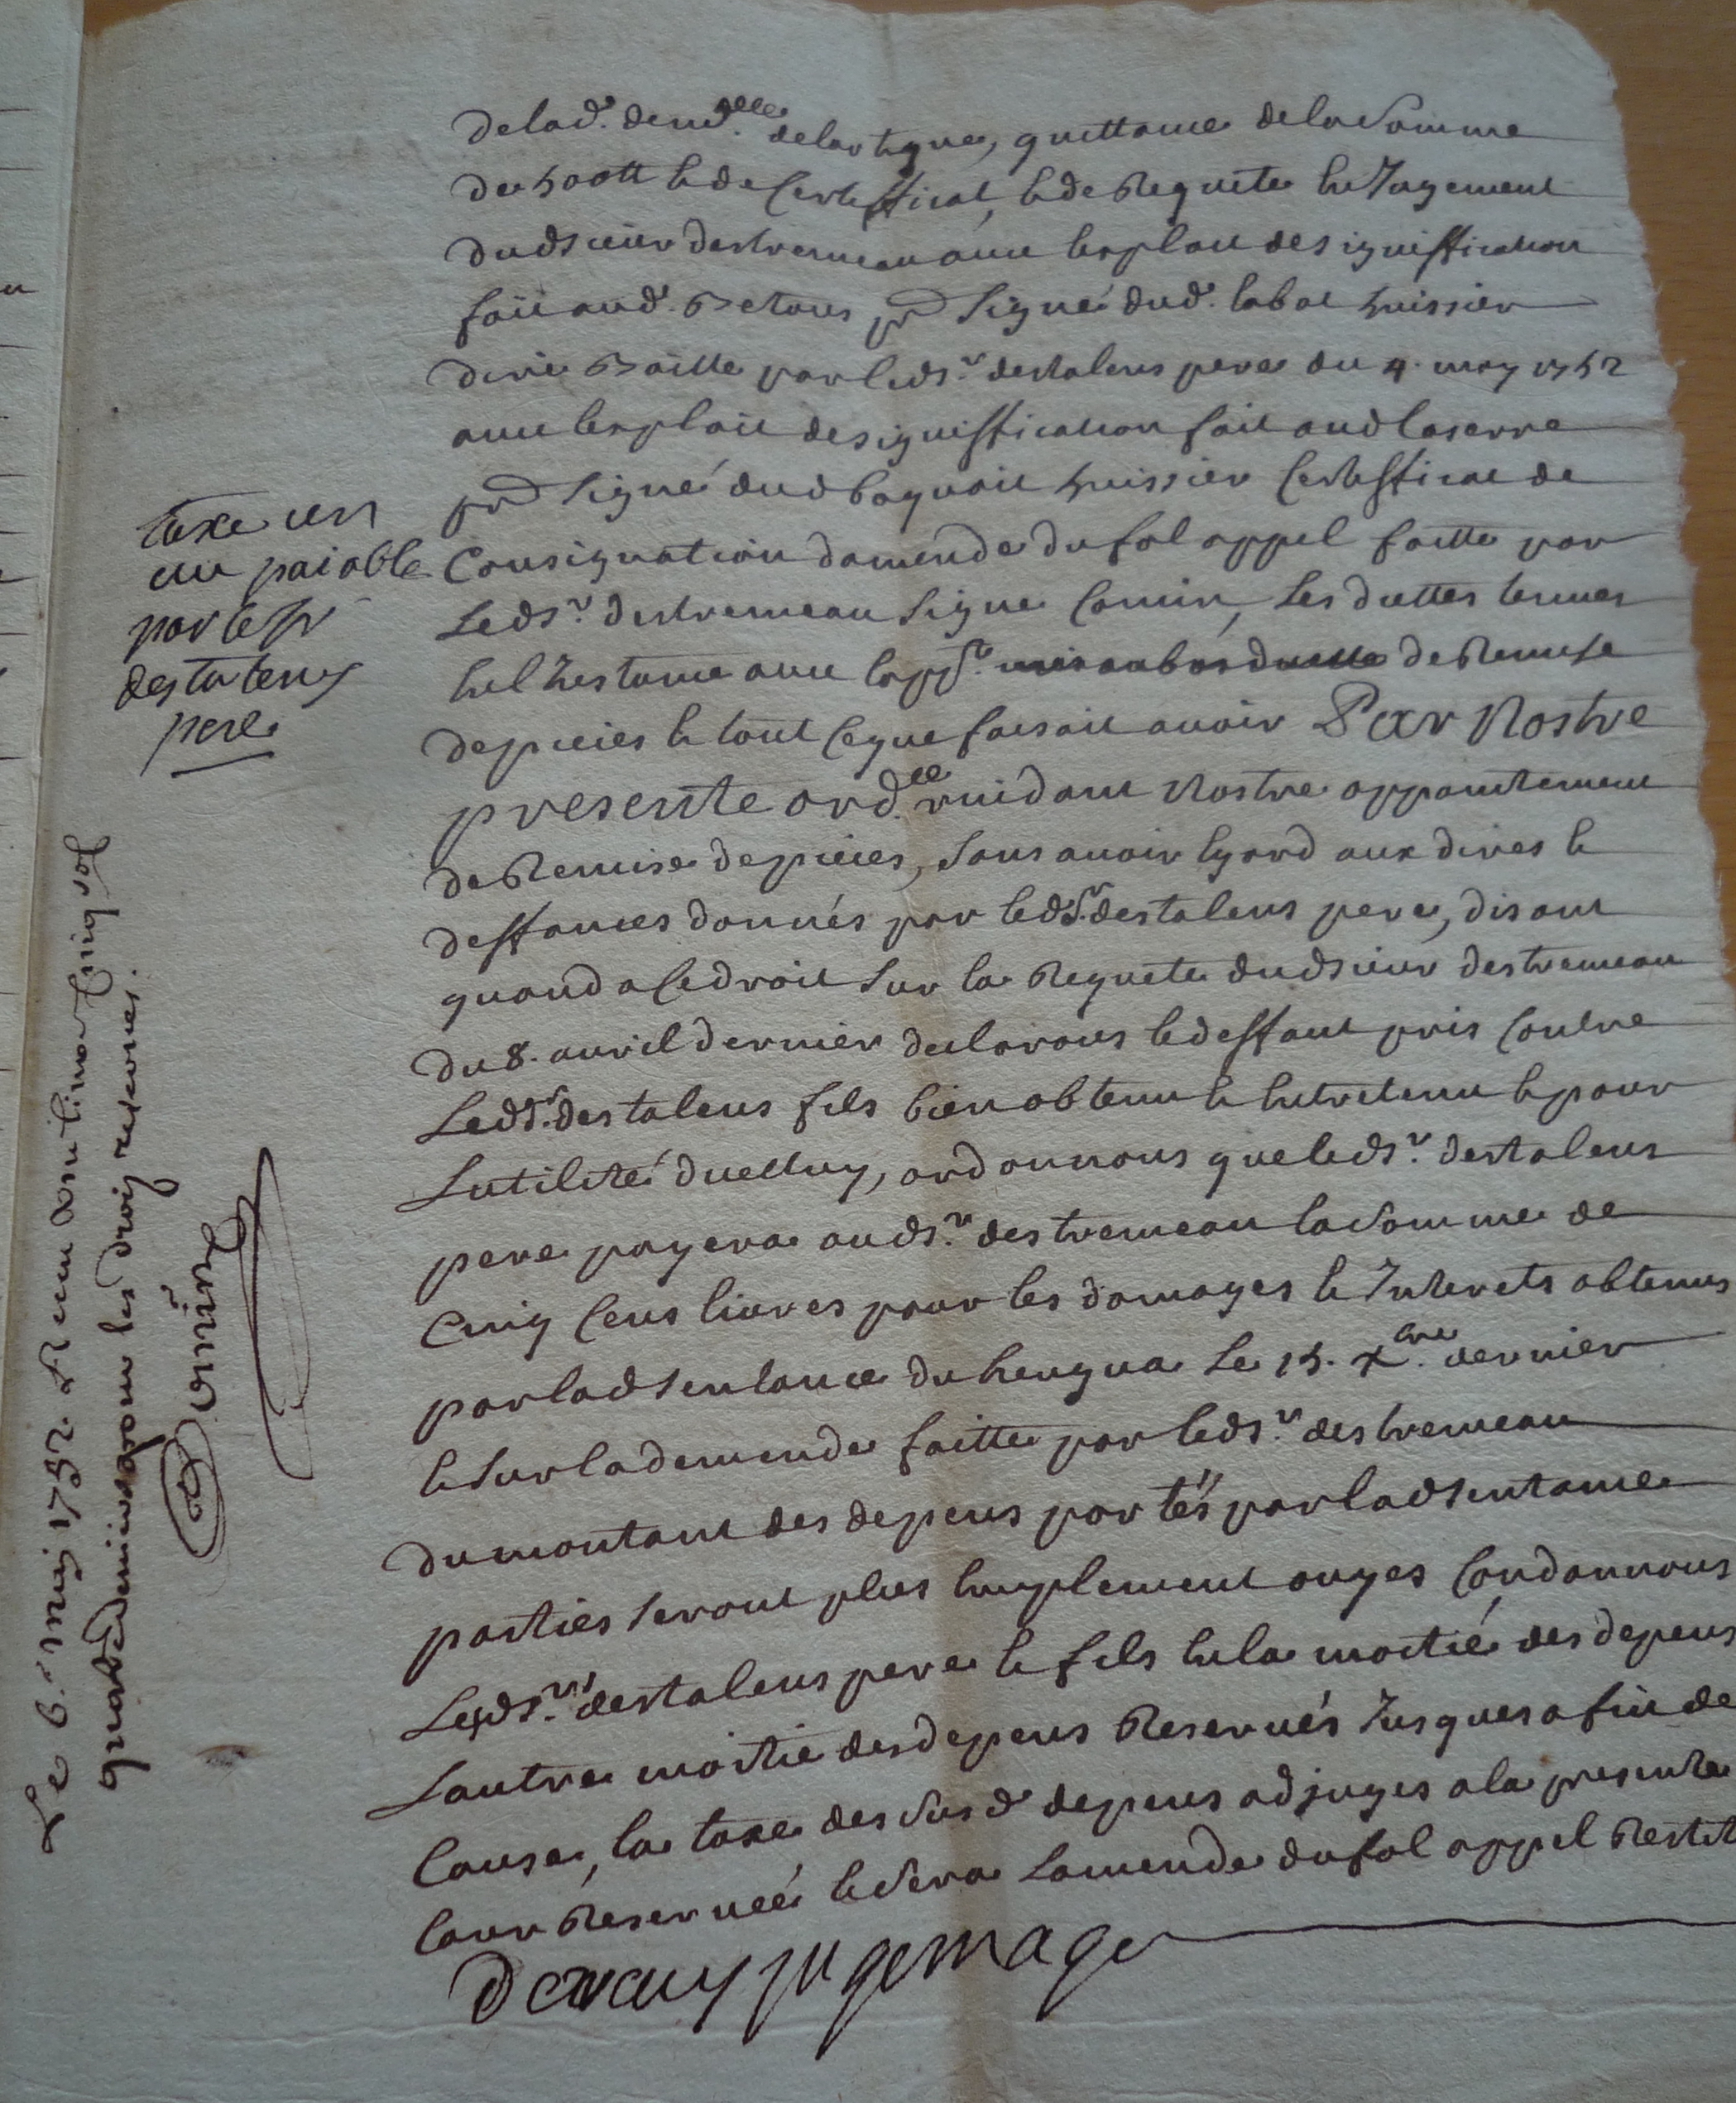 delad.e dem.d elle delartigue, quittance dela somme
de 500tt & de certifficat, & de Requete en Jugement
dudsieur destremeau avec lexploit designiffication
fait aud. Betous pr. Signé dud. labat huissier
dire Baillé par leds.r destalens pere du 4. may 1752
avec lexploit designiffication fait aud laserre
pr. Signé dud huissier Certifficat de
Consignation damende du fol appel faitte par
Leds.r destremeau Signe Comin, Les dattes temes
en linstance avec lapp.t de Remise
de pieces & tout ce que faisait avoir Par Nostre
presente ord.ce vuidant Nostre appointement
de Remise de pieces, sans avoir egard aux dires &
deffances donnés par leds.r destalens pere, disant
quand a ce droit sur la Requete dudsieur destremeau
du 8. avril dernier declarons le deffaut pris contre
Leds.r destalens fils bien obtenu & entretenu & pour
Lutilité duelluy, ordonnons que leds.r destalens
pere payera auds.r destremeau la somme de
Cinq cens livres pour les domages & Interets obtenus
par lad sentance du senequa Le 15. Xbre dernier
& sur la demende faitte par leds.r destremeau
du montant des depens portés par lad sentance
parties seront plus emplement ouyes Condamnons
Lesds.rs destalens pere & fils en la moitié des depens
Lautre moitie des depens Reservés Jusques a fin de
Cause, la taxe des susd depens adjuges a la presente
Cour Reservéé & sera Lamende du fol appel Restit
daxaux jugemage
taxe un
ecu paiable
par le sr
destalens
pere
Le 6.e may 1752. Receu vn livre cinq sol
quatre deniers pour les drois reservés.
Comin